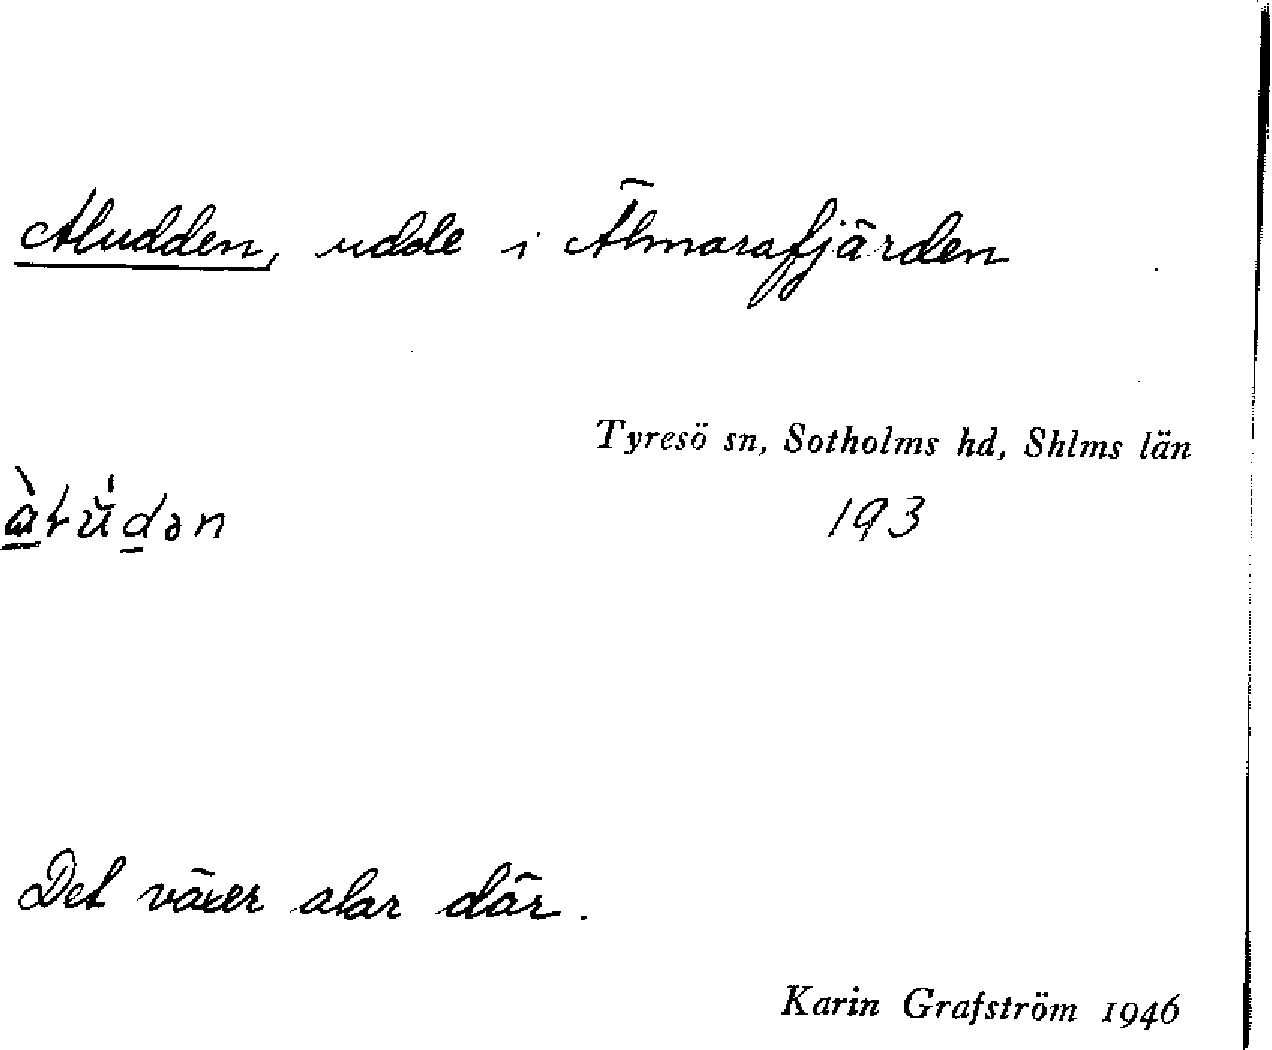 Aludden, udde i Älmarafjärden
Tyresö sn, Sotholms hd, Shlms län
193
Det växer alar där.
Karin Grafström 1946